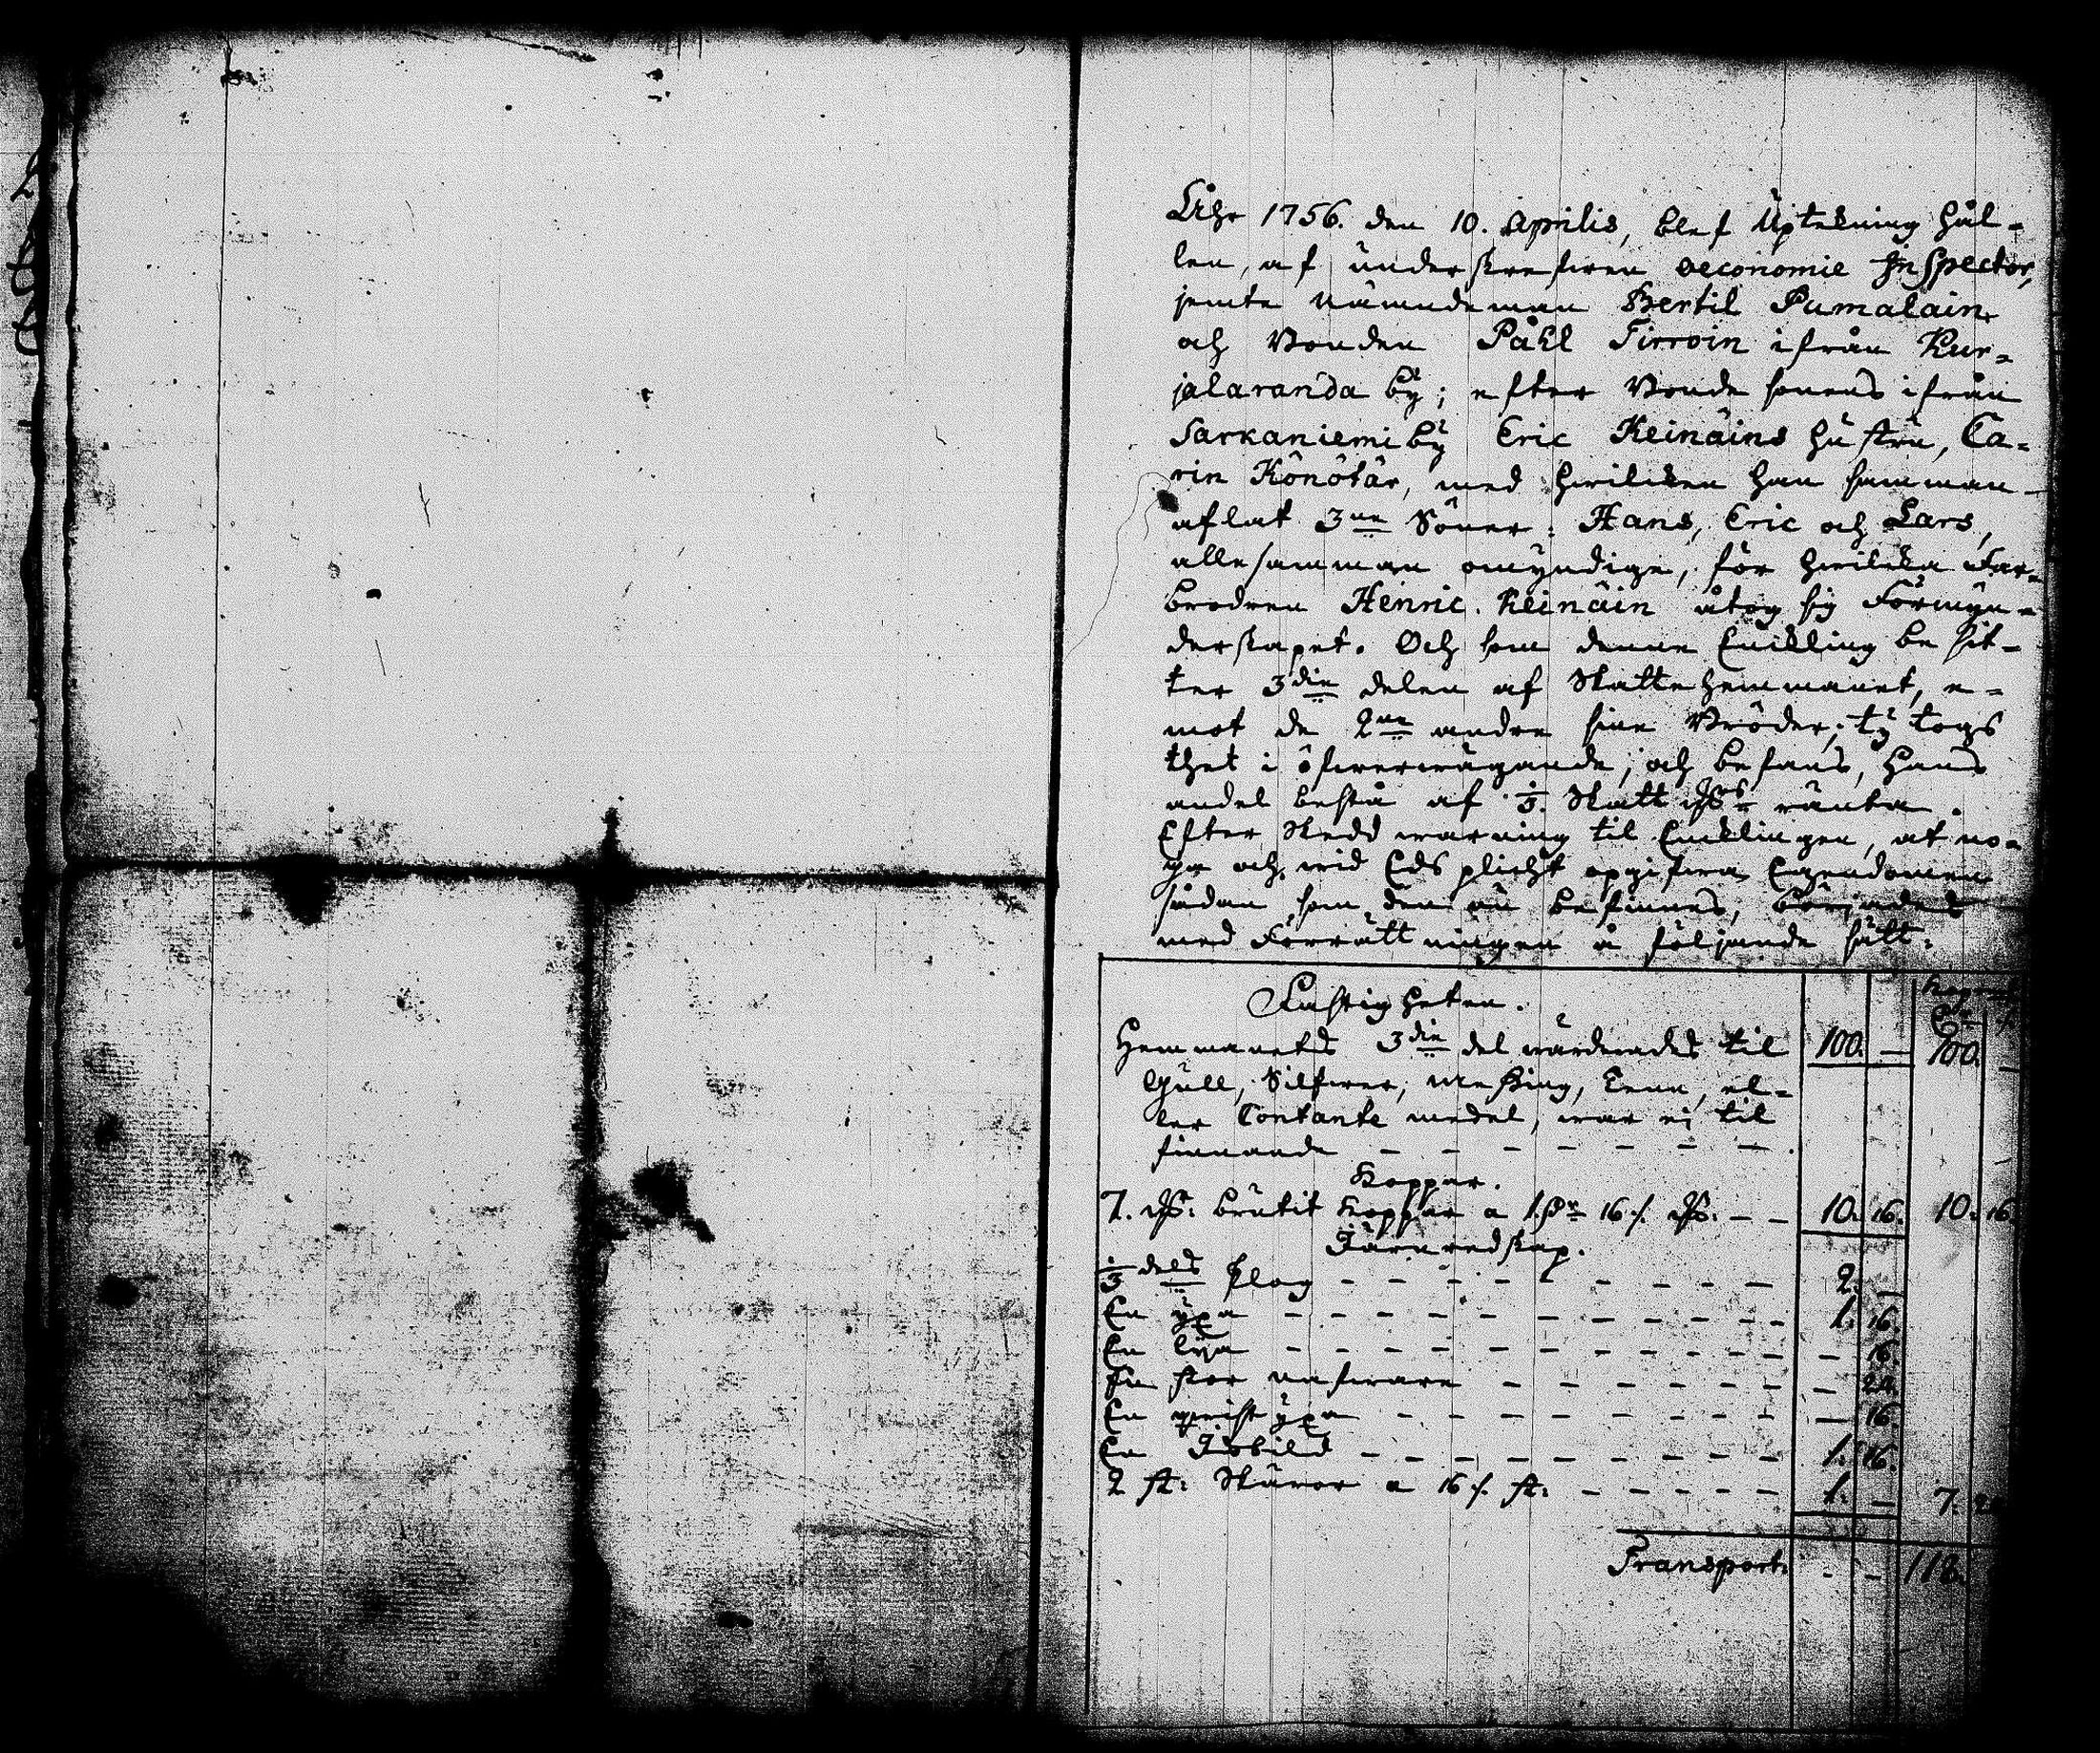 Åhr 1756. den 10. Aprilis, blef Uptekning hål-
len, af underskrefwen oeconomie Inspector,
jemte nämndeman Bertil Pumalain
och Bonden Påhl Tirroin ifrån Kur-
jalaranda by; efter Bonde sonens ifrån
Sarkaniemi by Eric Keinäins hustru, Ca-
rin Könötär, med hwilcken han samman-
aflat 3ne Söner: Hans, Eric och Lars,
allesamman omyndige, för hwilcka Far-
brodren Henric Keinäin åtog sig Förmyn-
derskapet. Och som denne Enckling besit-
ter 3die delen af Skattehemmanet, e-
mot de 2ne andre sine Bröder; ty togs
thet i öfwerwägande, och befans, hans
andel bestå af 1/3 Skatt ränta.
Efter skedd warning til Encklingen, at no-
ga och wid Edsplicht opgifwa Egendomen
sådan som den nu befinnes, börjades
med Förrättningen å följande sätt:
Fastigheten.
Hemmanets 3die del wärderades til 100. — 100. —
Gull, Silfwer, Messing, Tenn, el-
ler Contante medel, war ej til
finnande - - - - - - -
Koppar.
7. ℔: brukit Koppar a 16 ℔: - - 10. 16. 10. 16.
Järnredskap.
1/3 dels Plog - - - - - - - - 2. —
En yxa - - - - - - - - - - 1. 16.
En lya - - - - - - - - - - — 16.
En stor nafware - - - - - - — 24.
En qwist yxa - - - - - - - - — 16.
En Isbill - - - - - - - - - 1. 16.
2 st: Skäror a 16 st: - - - - - 1. — 7.
Transport. - - 118.